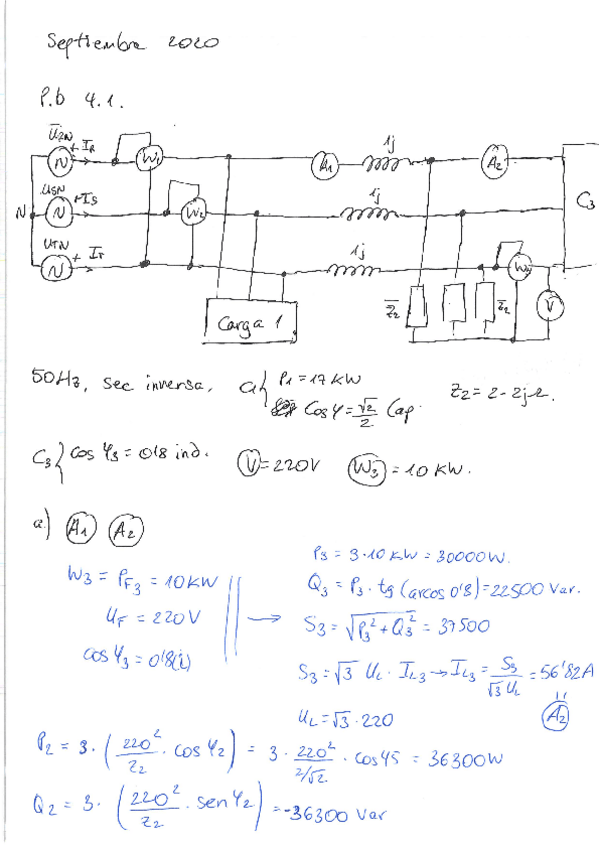 Septiembre 2020
P.b 4.1.
U̅RN + IR W1 A1 1j A2
USN + IS W2 1j C3
N
UTN + IT 1j W3
Carga 1 Z̅2 Z̅2 V
50Hz, sec inversa, C1{ P1 = 17 KW Z2 = 2 - 2j Ω.
Cos φ = √2/2 Cap.
C3{ cos φ3 = 0'8 ind. V = 220V W3 = 10 KW.
a) A1 A2
W3 = PF3 = 10 KW
UF = 220 V
cos φ3 = 0'8 (i)
P3 = 3·10 KW = 30000 W.
Q3 = P3 · tg (arcos 0'8) = 22500 Var.
S3 = √(P3² + Q3²) = 37500
S3 = √3 UL · IL3 → IL3 = S3/(√3 UL) = 56'82 A
= A2
UL = √3 · 220
P2 = 3 · (220²/Z2 · cos φ2) = 3 · 220²/(2/√2) · cos 45 = 36300 W
Q2 = 3 · (220²/Z2 · sen φ2) = -36300 Var